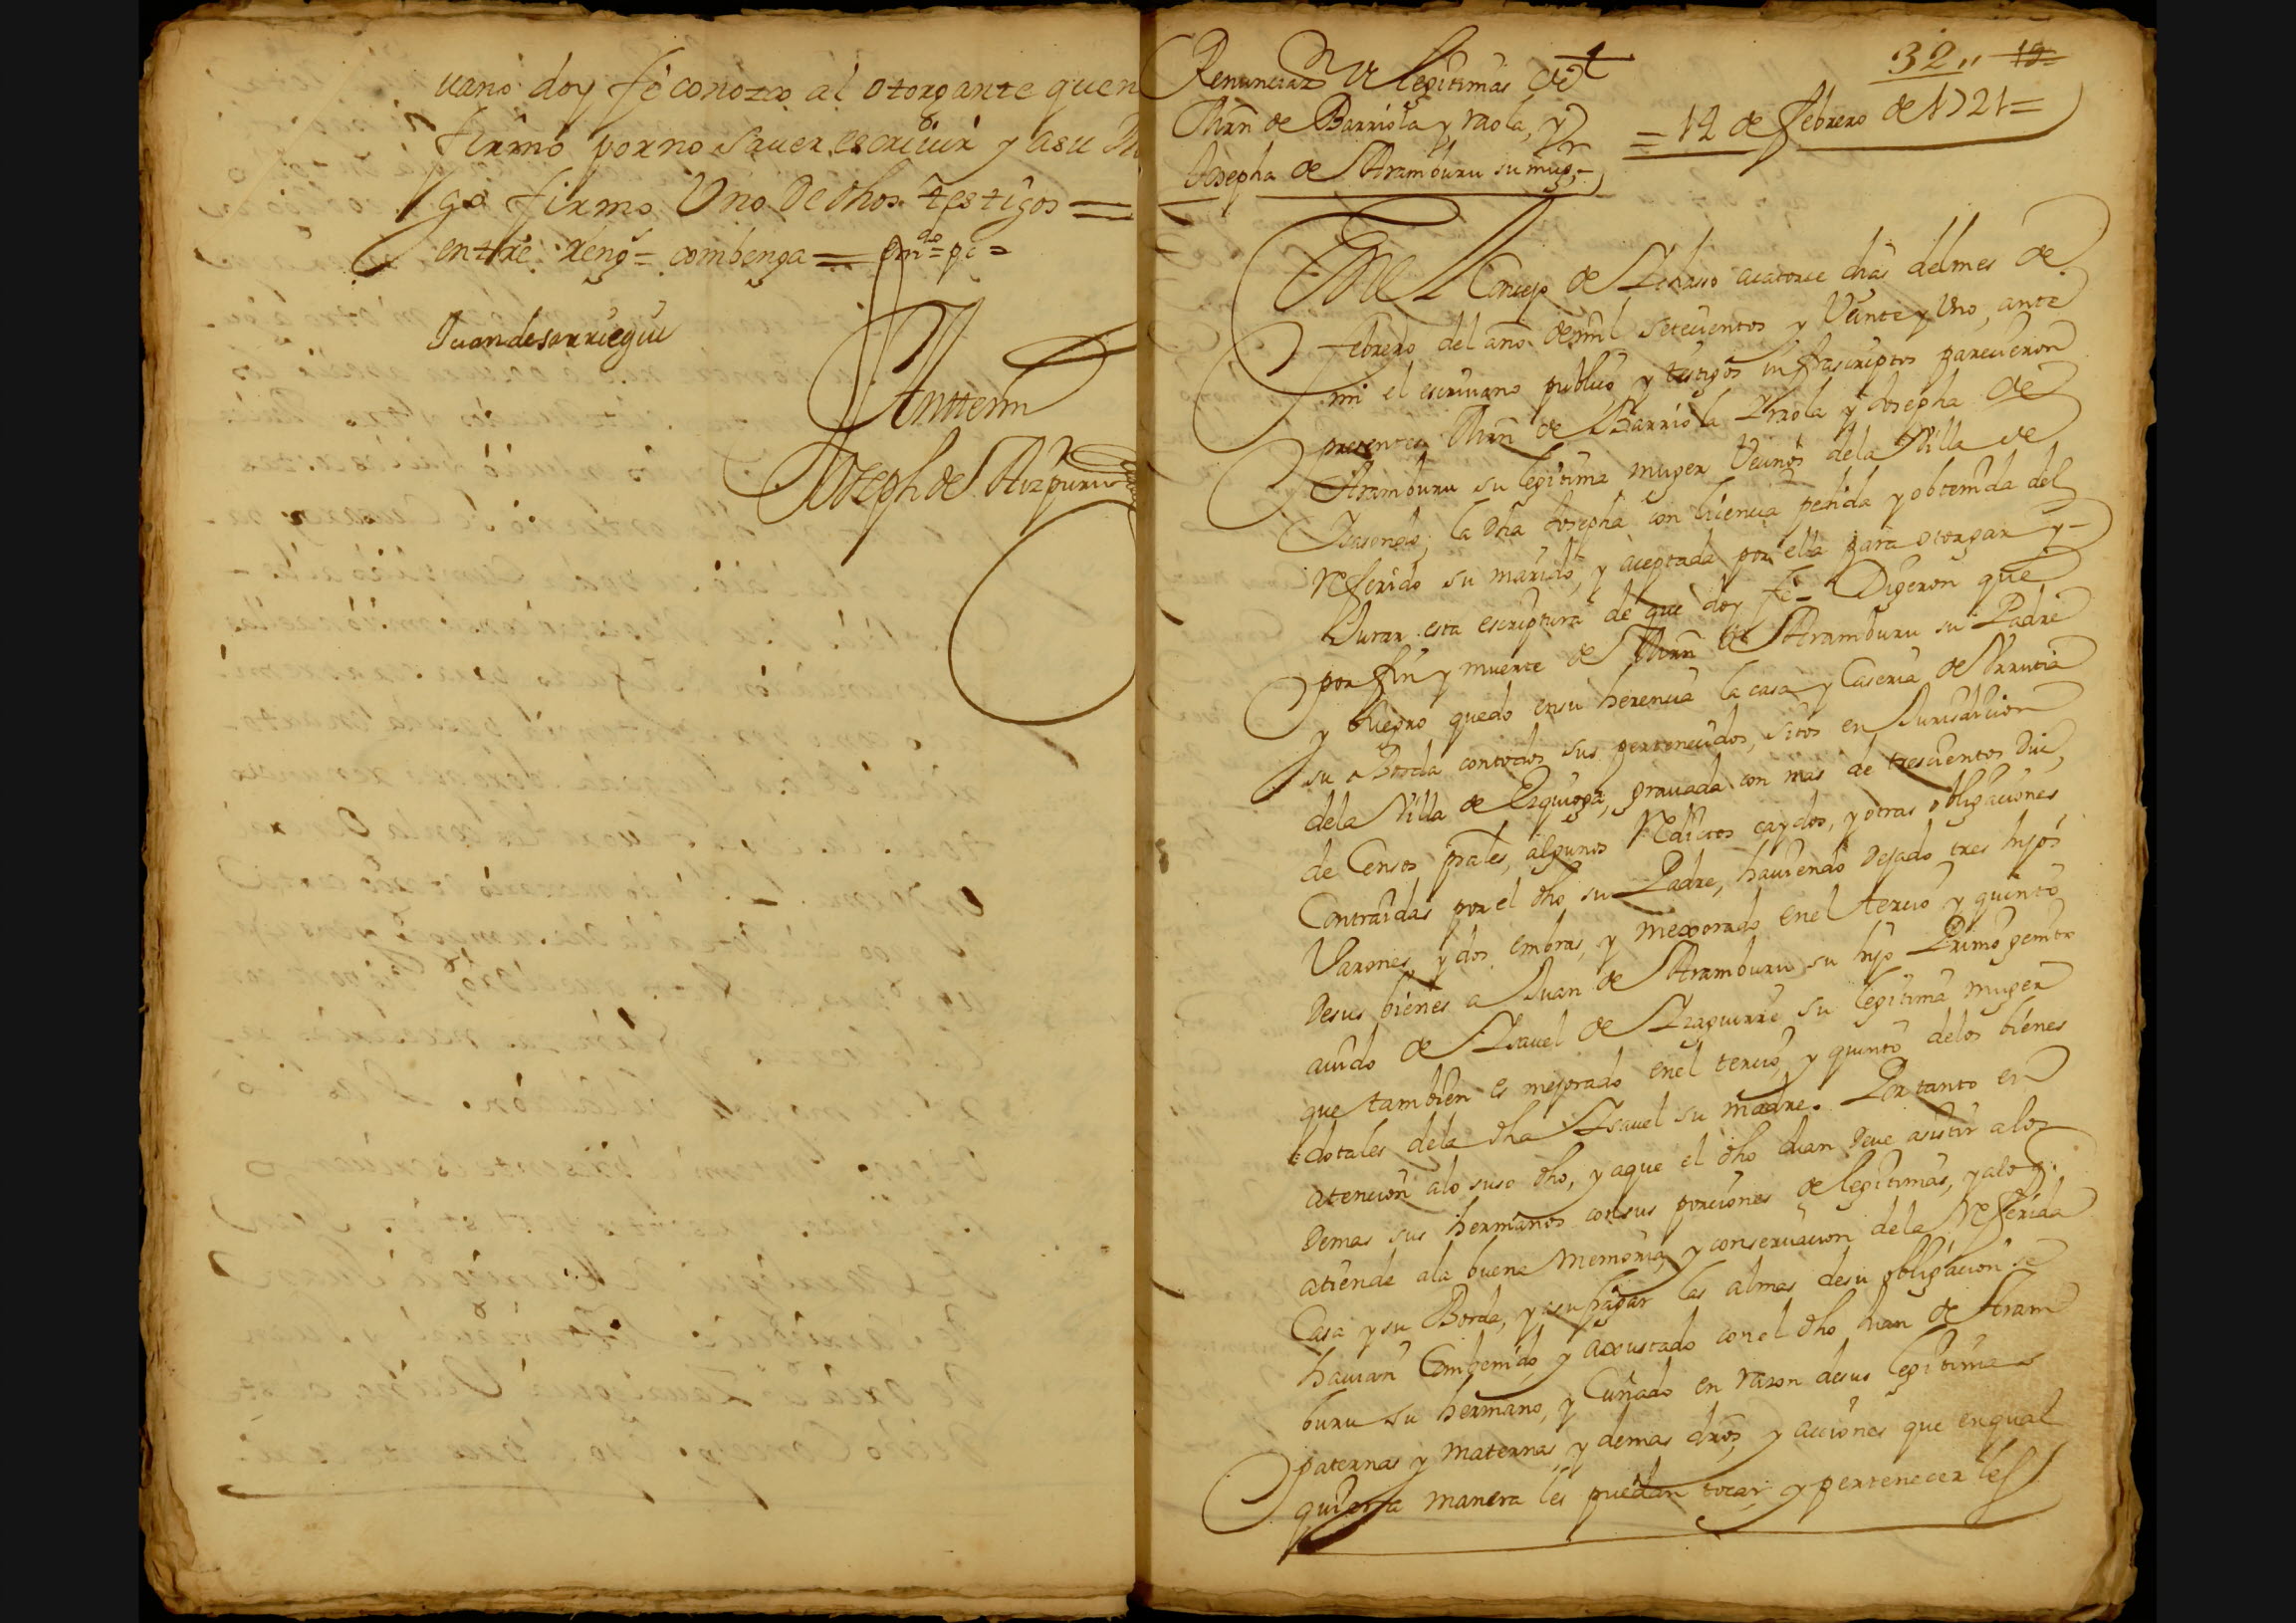 uano doy fé conozco al otorgante quen
firmó por no sauer escriuir y asu
go firmo Uno De dhos testigos =
entre reng.s = combenga = em.do = pe =
Juan de sarriegui
Anttemi
Joseph de Aizpuru
32,, 19
Renunciaz.n de legitimas de
Mrn de Barriola y raola, y
Josepha de Aramburu su mug.r
= 14 de febrero de 1721 =
En el Concejo de Ichasso acatorce dias del mes de
febrero del año de mil setecientos y Veinte y Uno, ante
mi el escriuano publico, y testigos infrascriptos parecieron
presentes Mrn de Barriola Yraola y Josepha de
Aramburu su legitima muger Vecinos dela Villa de
Ysasondo, la dha Josepha con licencia pedida y obtenida del
referido su marido, y aceptada por ella para otorgar y
Jurar esta escriptura de que doy fé = Digeron que
por fin y muerte de Mrn de Aramburu su Padre
y suegro quedo en su herencia la casa y Caseria de Urrutia
su Borda contodos sus pertenecidos, sitos en Jurisdicion
dela Villa de Ezquioga, grauada con mas de trescientos duc.s
de Censos prales, algunos Reditos caydos, y otras obligaciones
Contraidas por el dho su Padre, hauiendo dejado tres hijos
Varones y dos embras, y mexorado en el tercio y quinto
Desus bienes a Juan de Aramburu su hijo Primogenito
auido de Ysauel de Yzaguirre su legitima muger
que tambien es mejorado en el tercio, y quinto delos bienes
dotales dela dha Ysauel su madre. Por tanto en
atencion alo suso dho, y aque el dho Juan Deue asistir alos
Demas sus hermanos con sus porciones de legitimas, y alo q.
atiende ala buena memoria, y conseruacion dela Referida
Casa y su Borda, y asufragar las almas desu obligacion se
hauian Combenido, y axustado con el dho Juan de Aram
buru su hermano, y Cuñado en razon desus legitimas
paternas y maternas, y demas dros, y acciones que en qual
quiera manera les puedan tocar y pertenecerles